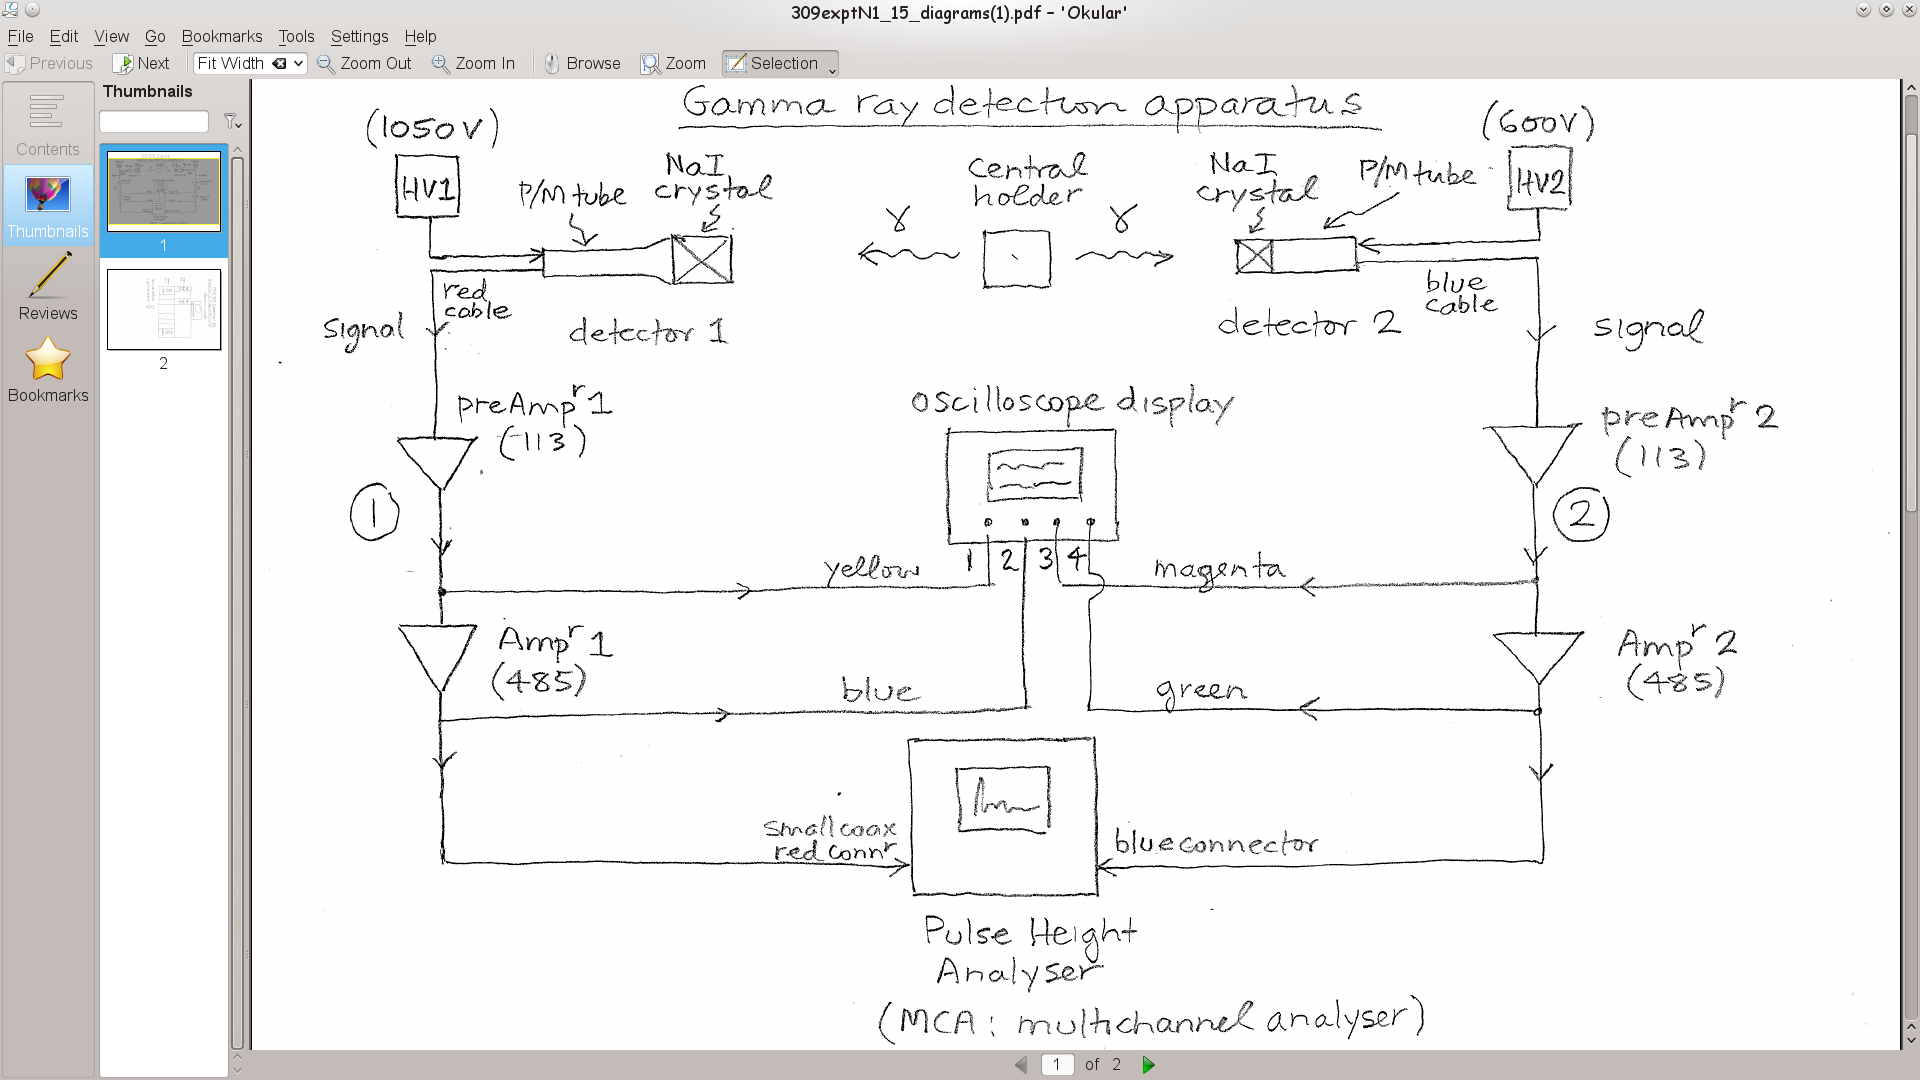 309exptN1_15_diagrams(1).pdf – 'Okular'
File Edit View Go Bookmarks Tools Settings Help
Previous Next Fit Width Zoom Out Zoom In Browse Zoom Selection
Contents
Thumbnails
Reviews
Bookmarks
Thumbnails
1
2
Gamma ray detection apparatus
(1050V)
HV1
P/M tube
NaI
crystal
Central
holder
NaI
crystal
P/M tube
(600V)
HV2
γ
γ
red
cable
signal
detector 1
detector 2
blue
cable
signal
preAmpʳ 1
(113)
oscilloscope display
preAmpʳ 2
(113)
1
2
1 2 3 4
yellow
magenta
Ampʳ 1
(485)
Ampʳ 2
(485)
blue
green
small coax
red connʳ
blue connector
Pulse Height
Analyser
(MCA: multichannel analyser)
1 of 2